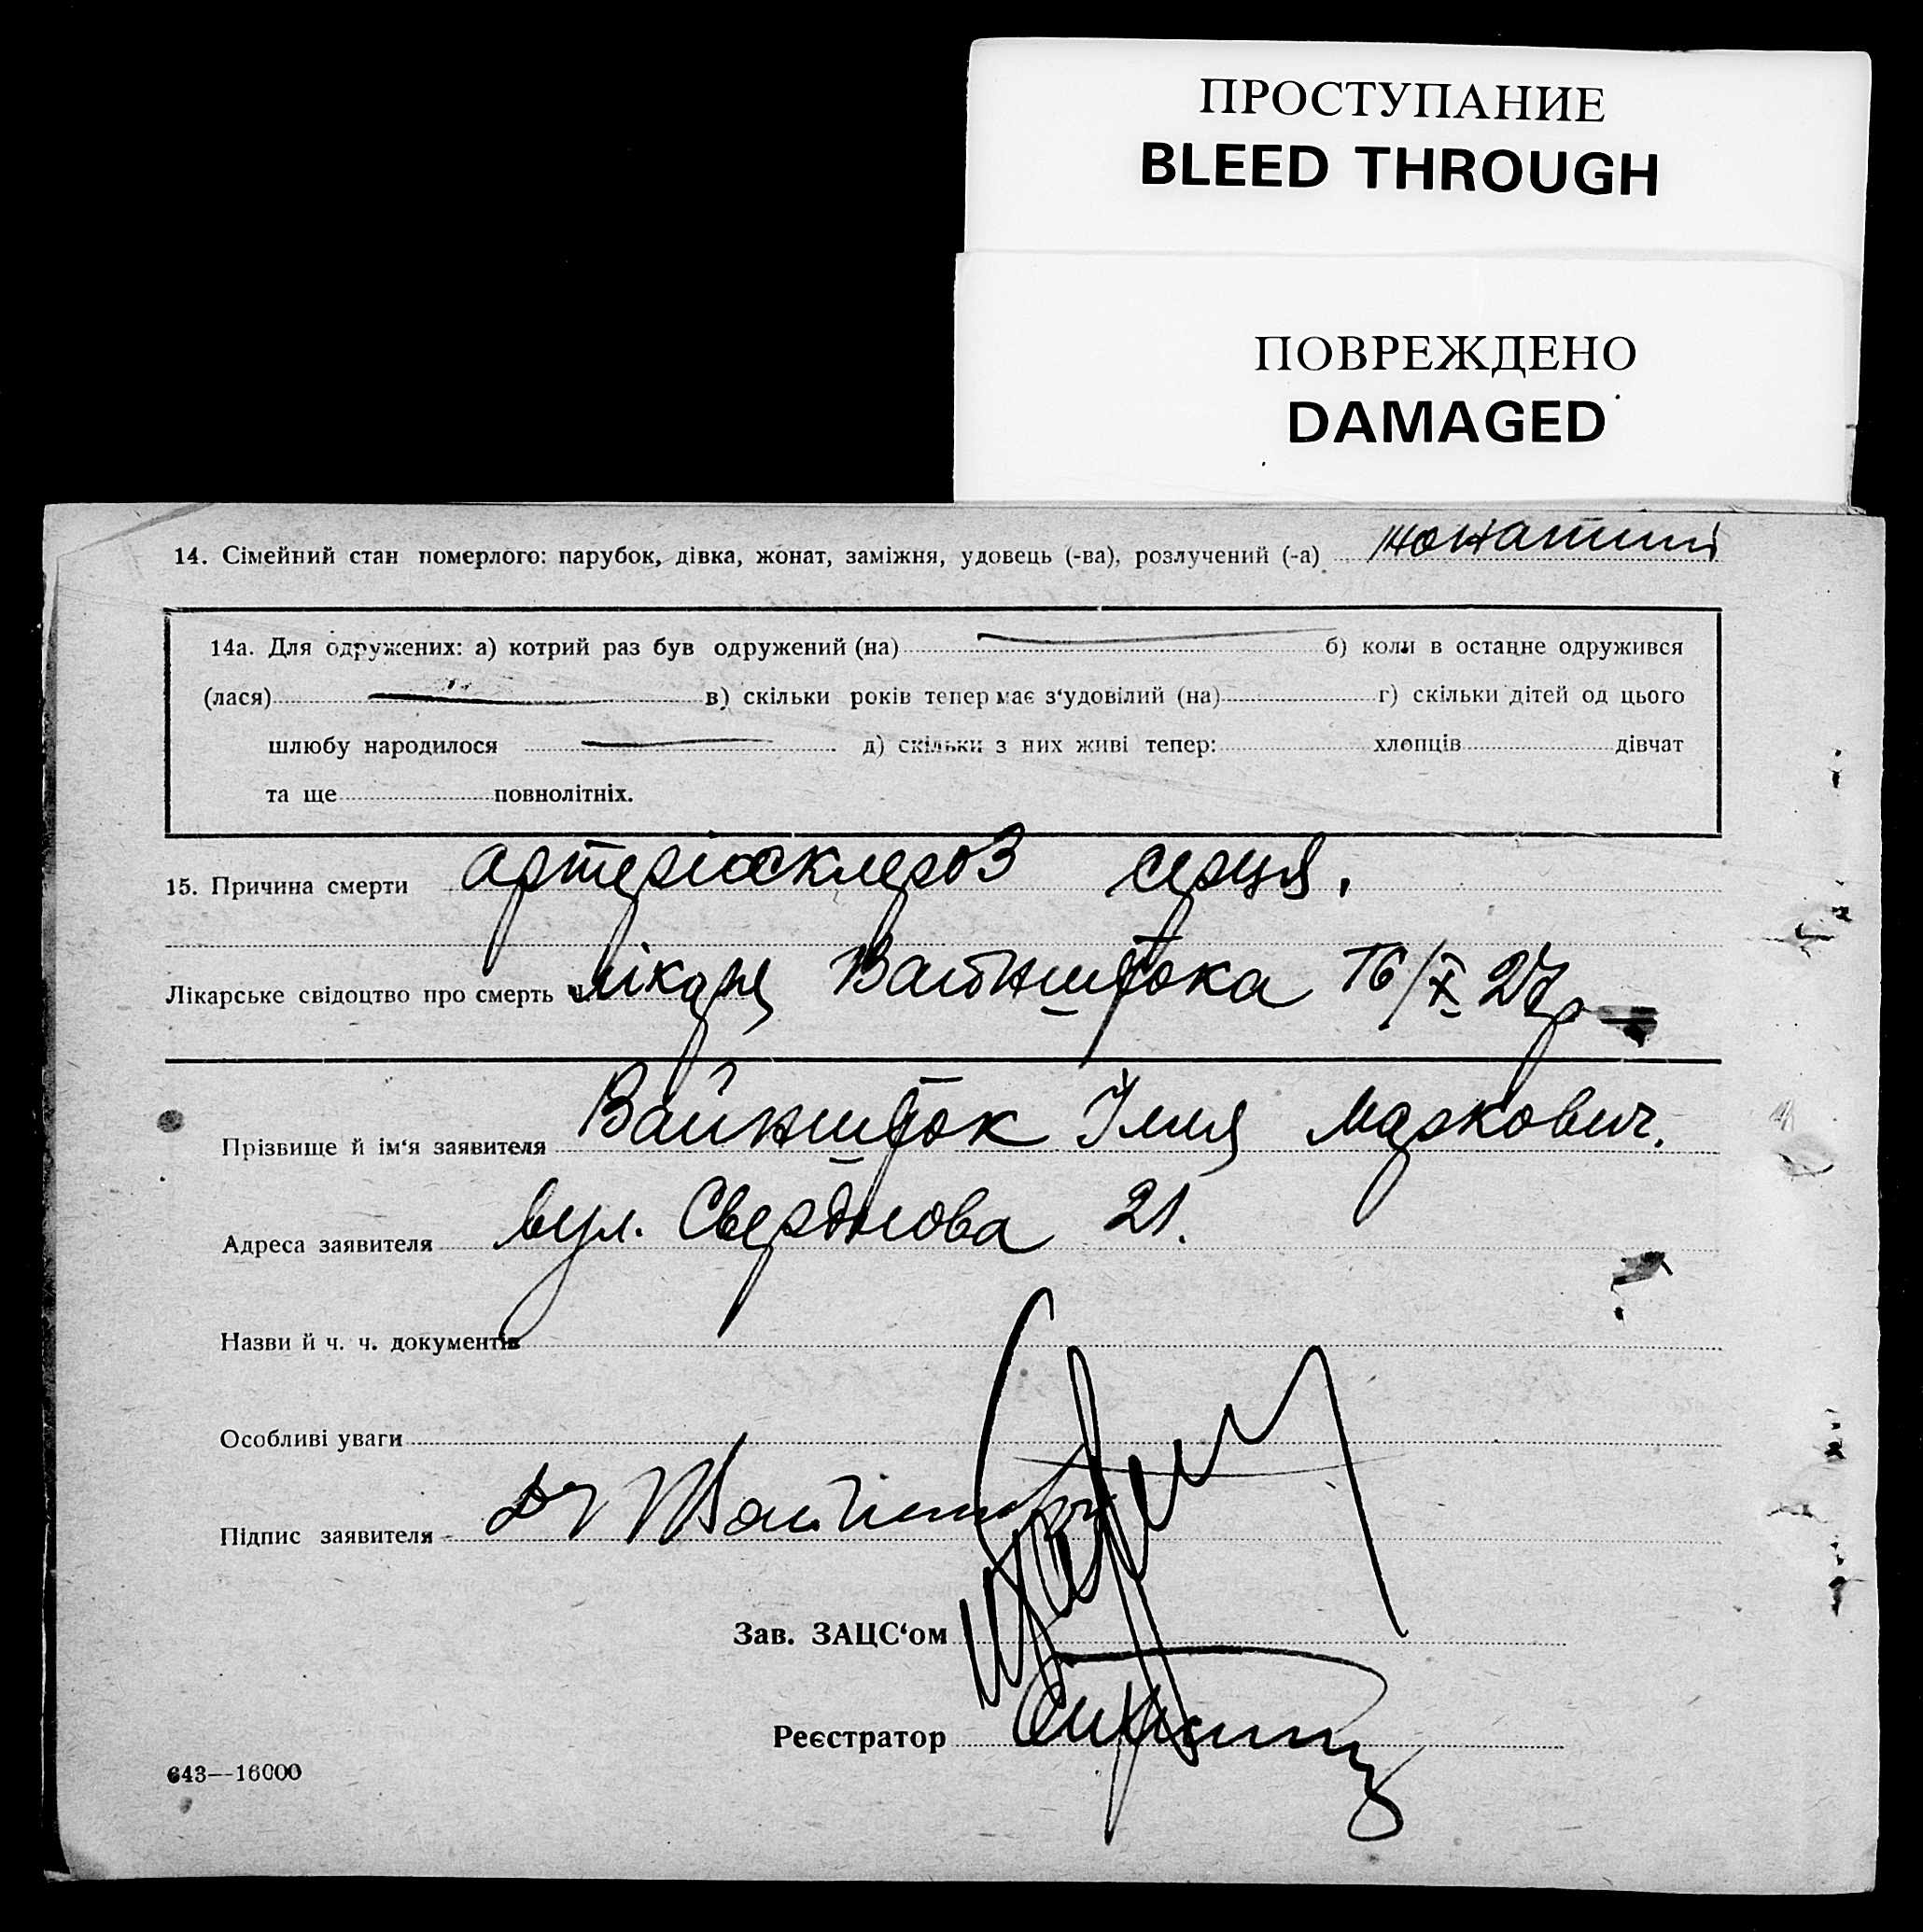 ПРОСТУПАНИЕ
BLEED THROUGH
ПОВРЕЖДЕНО
DAMAGED
14. Сімейний стан померлого: парубок, дівка, жонат, заміжня, удовець (-ва), розлучений (-а) жонатий
14а. Для одружених: а) котрий раз був одружений (на) б) коли в останне одружився
(лася) в) скільки років тепер має з‘удовілий (на) г) скільки дітей од цього
шлюбу народилося д) скільки з них живі тепер: хлопців дівчат
та ще повнолітніх.
15. Причина смерти артеріосклероз серця.
Лікарське свідоцтво про смерть лікаря Вайнштока 16/X 27 р
Прізвище й ім‘я заявителя Вайншток Ілля Маркович.
Адреса заявителя вул. Свердлова 21.
Назви й ч. ч. документів
Особливі уваги
Підпис заявителя Dr
Зав. ЗАЦС‘ом
Реєстратор
643—16000